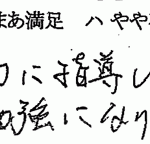 まあ満足 ハ やや
に指導し
勉強になり